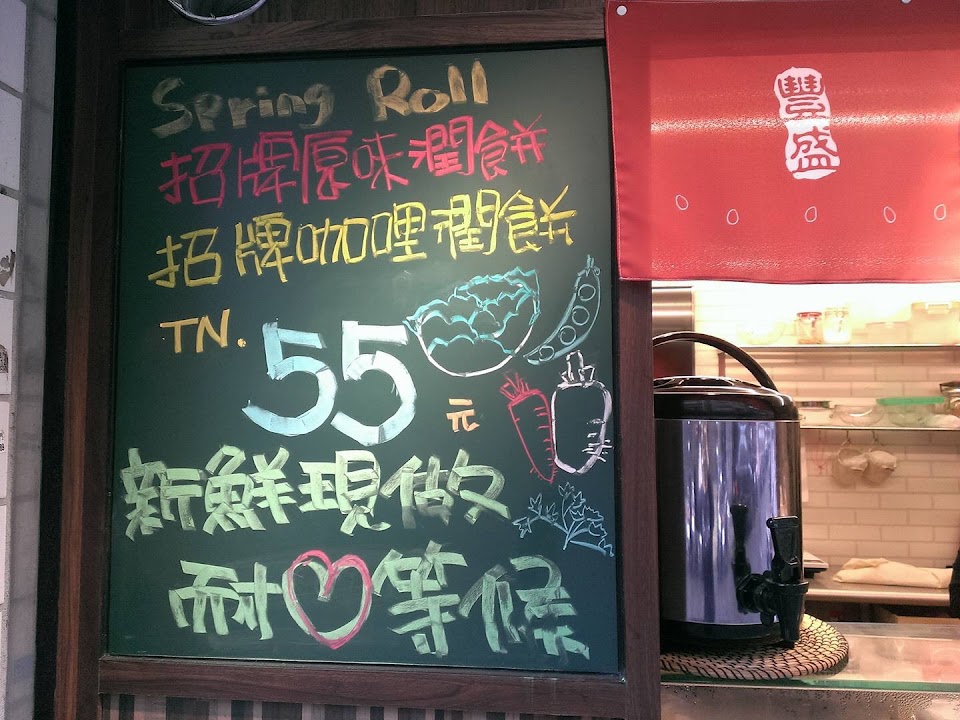 Spring Roll
招牌原味潤餅
招牌咖哩潤餅
TN. 55元
新鮮現做
耐♡等候
豐盛